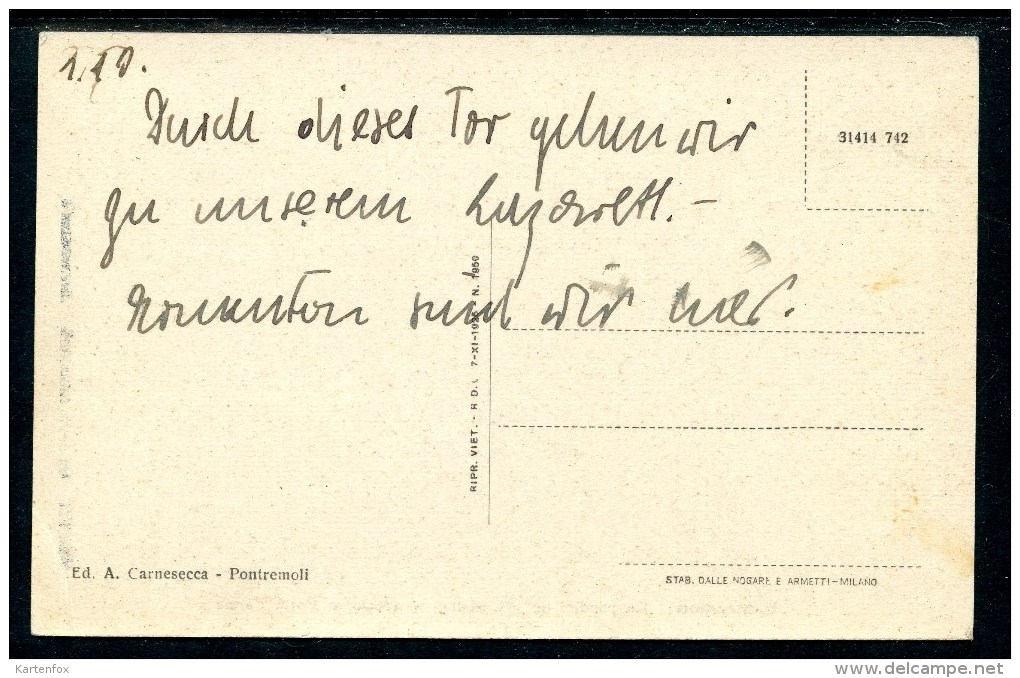 1.10.
Durch dieses Tor gehen wir
zu unserem Lazarett. -
Momentan sind wir hier.
31414 742
RIPR. VIET. - R D. 7-XI-192 N. 1950
Ed. A. Carnesecca - Pontremoli
STAB. DALLE NOGARE E ARMETTI-MILANO
Kartenfox
delcampe.net